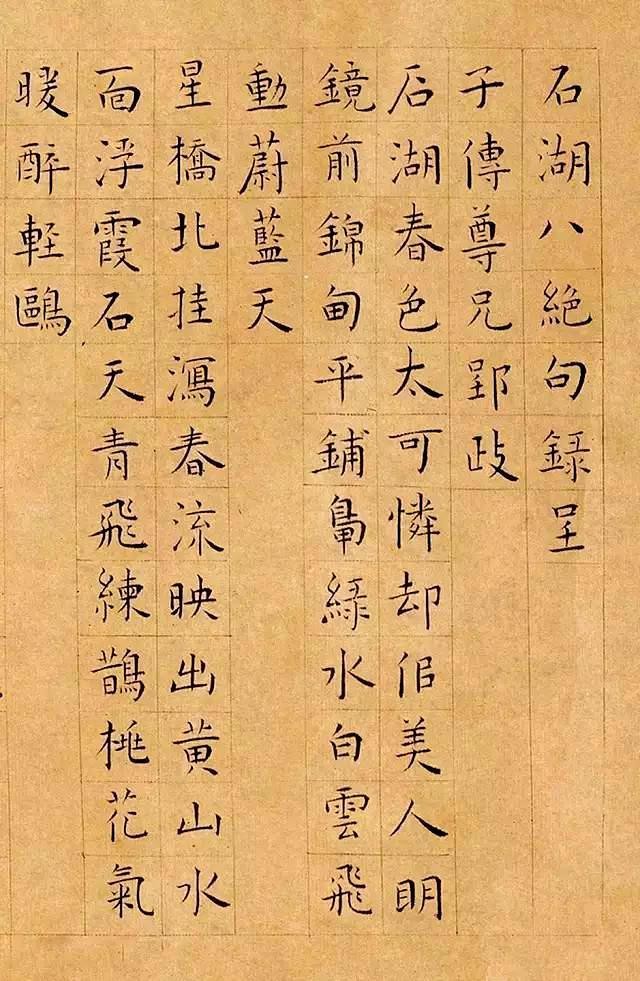 石湖八絶句録呈
子傳尊兄郢政
石湖春色太可憐却佀美人眀
鏡前錦甸平鋪鳧綠水白雲飛
動蔚藍天
星橋北挂瀉春流映出黄山水
面浮霞石天青飛練鵲桃花氣
暖醉輕鷗